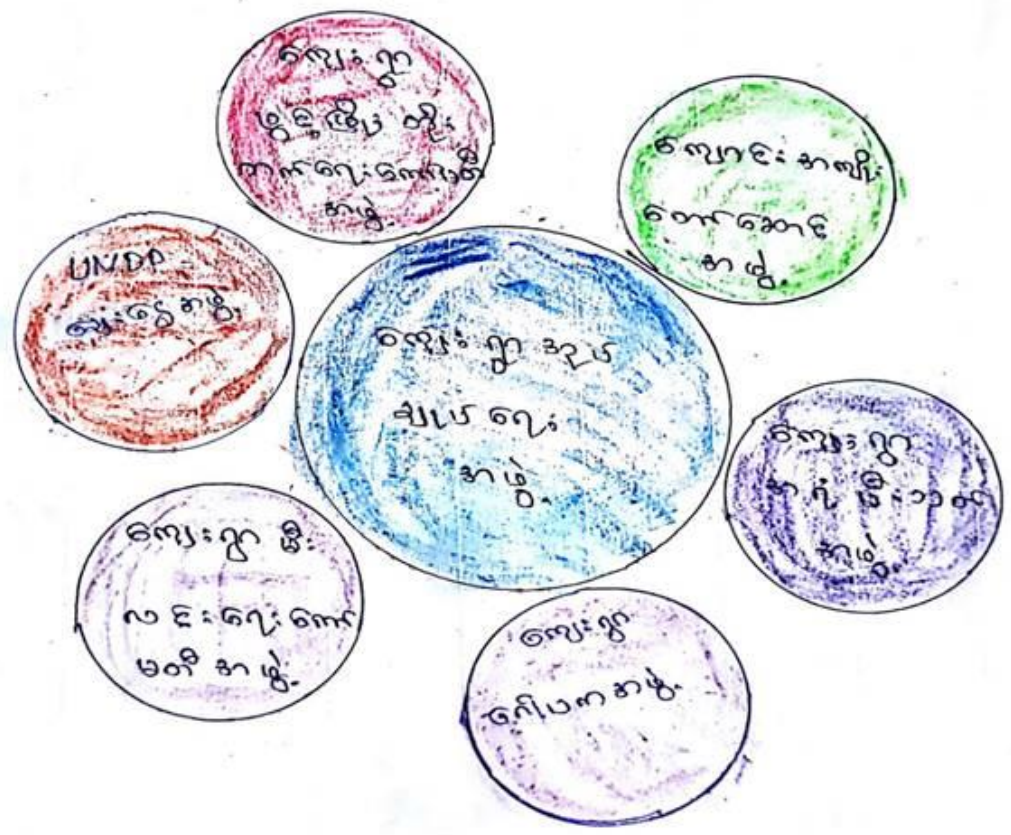 ကျေးရွာ
ဖွင့်ဖြိုး တိုး
တက်ရေးကော်မတီ
အဖွဲ့
ကျောင်းအကျိုး
တော်ဆောင်
အဖွဲ့
UNDP
ချေးငွေအဖွဲ့
ကျေးရွာ အုပ်
ချုပ်ရေး
အဖွဲ့
ကျေးရွာ
အရံမီးသတ်
အဖွဲ့
ကျေးရွာ မီး
လင်းရေးကော်
မတီ အဖွဲ့
ကျေးရွာ
ဂေါပကအဖွဲ့